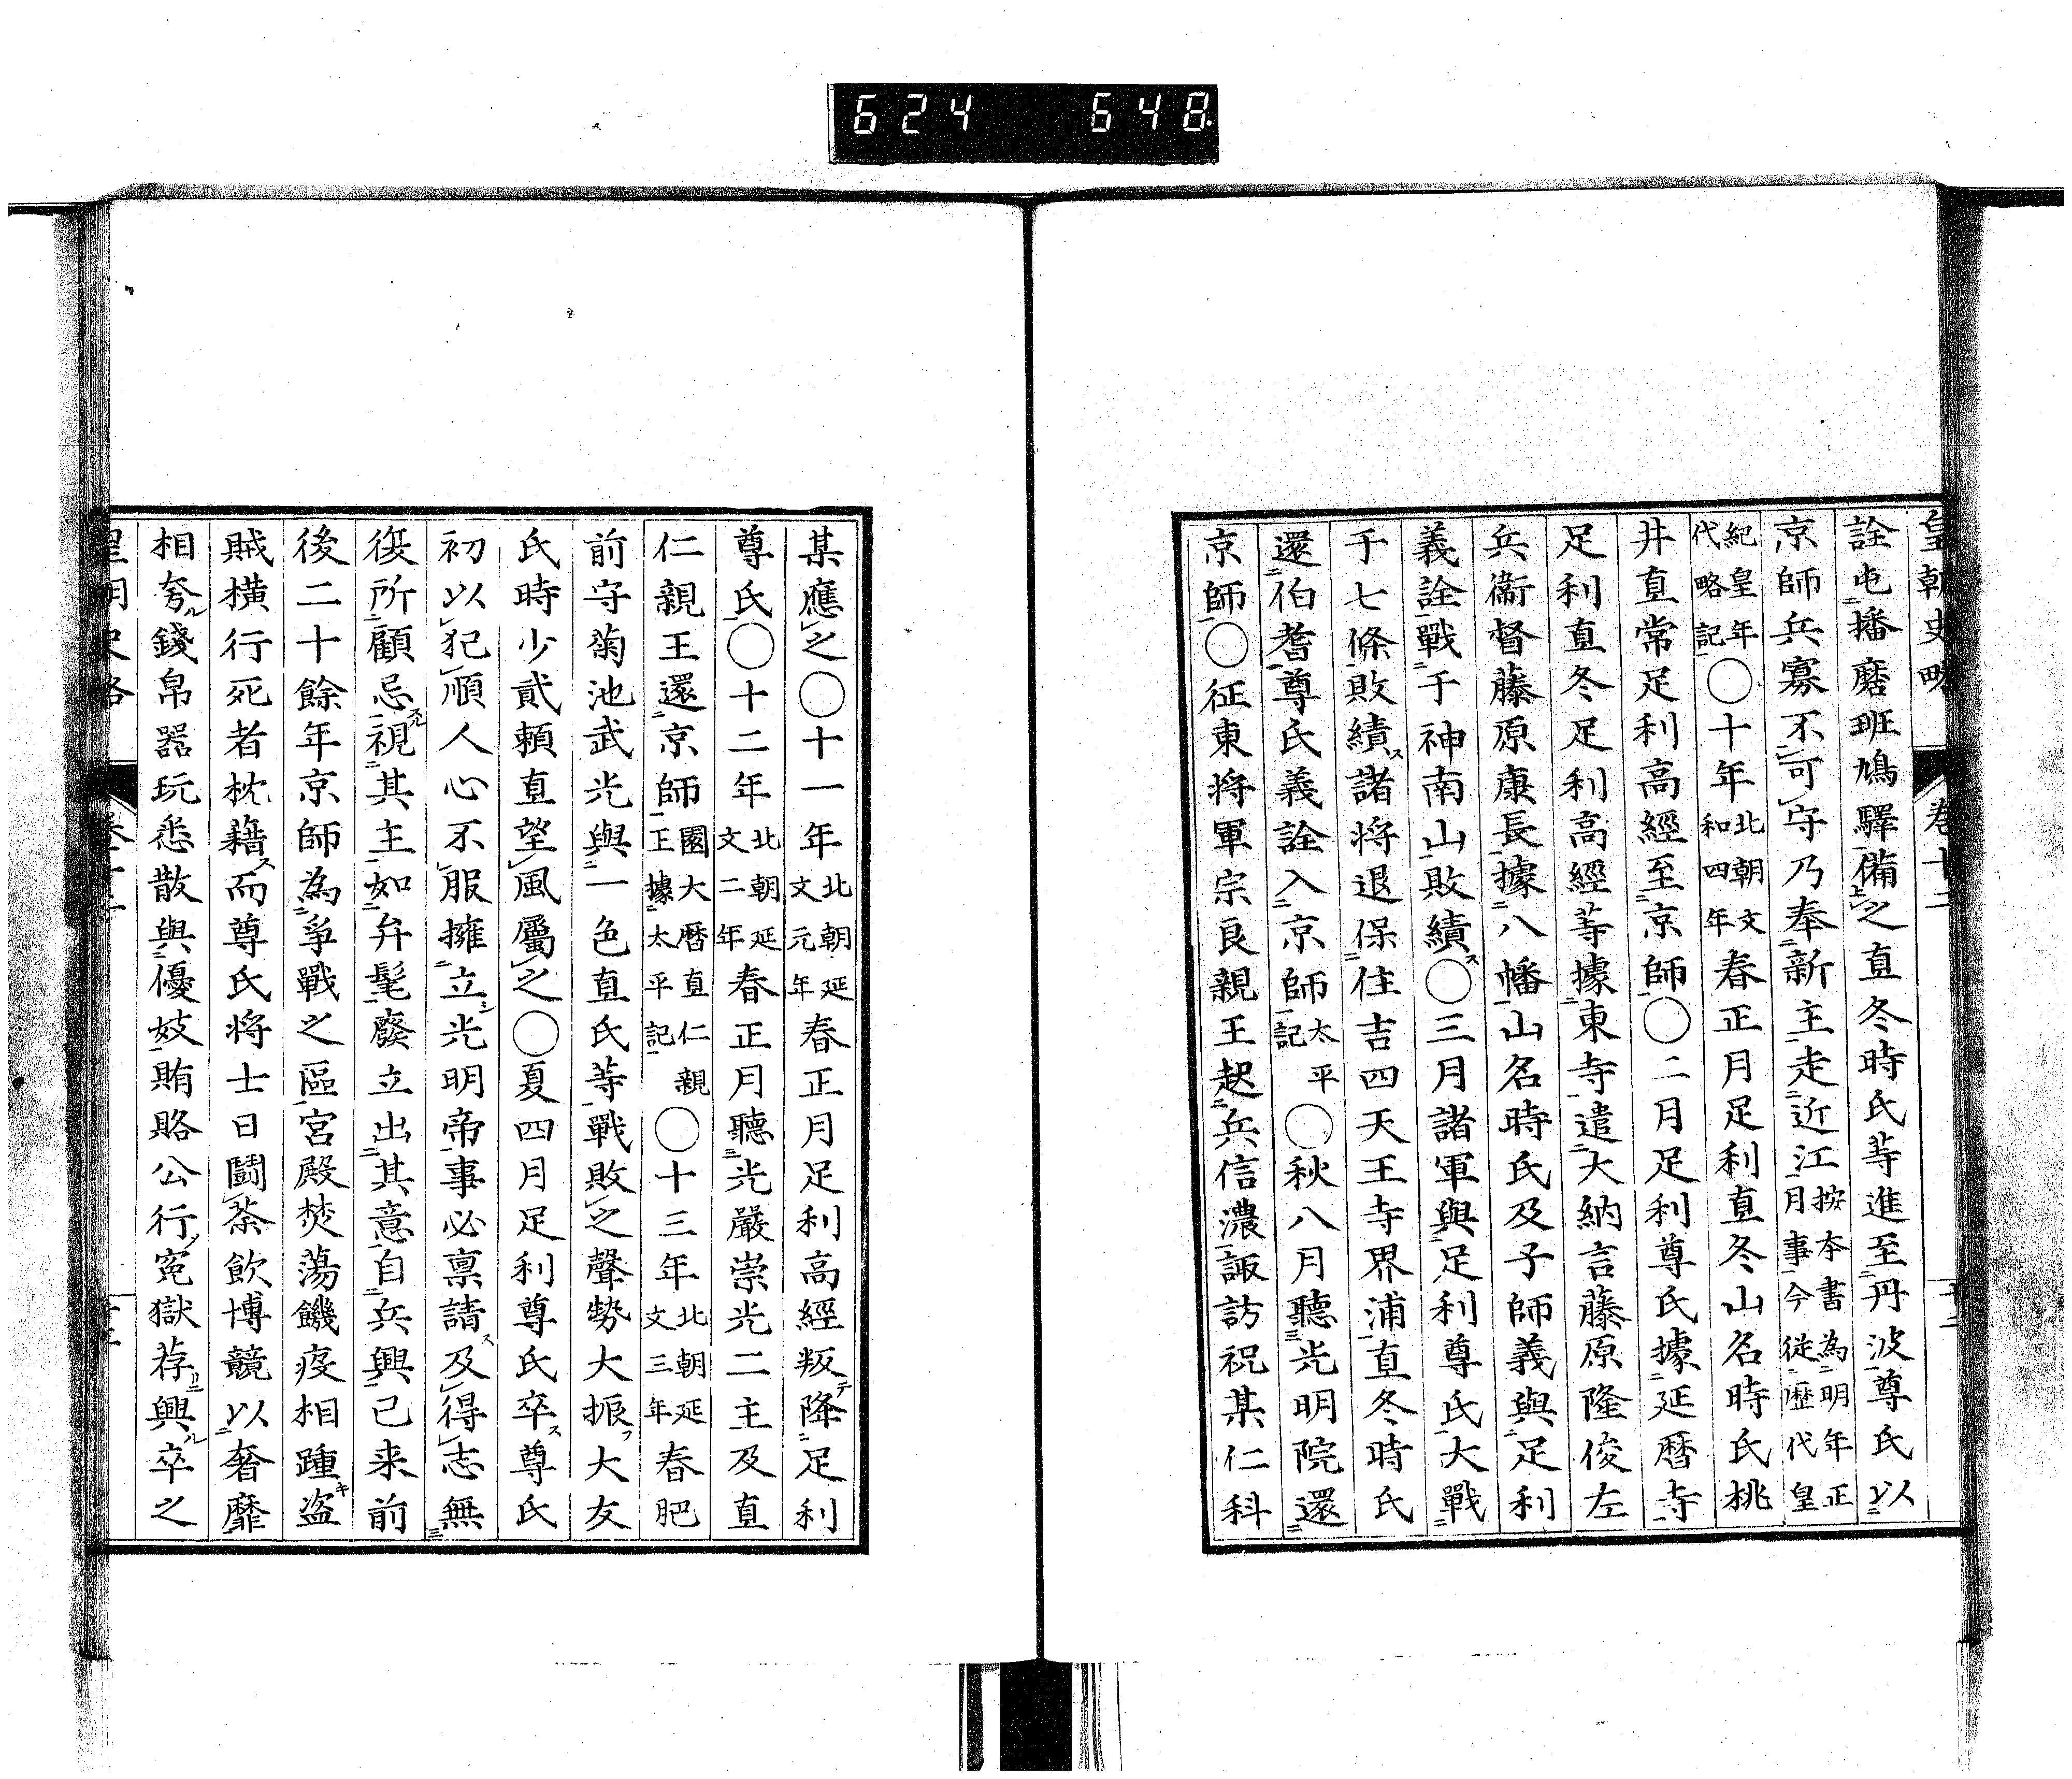 624 648
皇朝史略 卷十二
詮屯播磨班鳩驛備之直冬時氏等進至丹波尊氏以
京師兵寡不可守乃奉新主走近江按本書為明年正月事今從歷代皇
紀皇年代略記○十年北朝文和四年春正月足利直冬山名時氏桃
井直常足利高經至京師○二月足利尊氏據延曆寺
足利直冬足利高經等據東寺遣大納言藤原隆俊左
兵衞督藤原康長據八幡山名時氏及子師義與足利
義詮戰于神南山敗績○三月諸軍與足利尊氏大戰
于七條敗績諸將退保住吉四天王寺界浦直冬時氏
還伯耆尊氏義詮入京師太平記○秋八月聽光明院還
京師○征東將軍宗良親王起兵信濃諏訪祝某仁科
某應之○十一年北朝延文元年春正月足利高經叛降足利
尊氏○十二年北朝延文二年春正月聽光嚴崇光二主及直
仁親王還京師園大曆直仁親王據太平記○十三年北朝延文三年春肥
前守菊池武光與一色直氏等戰敗之聲勢大振大友
氏時少貳賴直望風屬之○夏四月足利尊氏卒尊氏
初以犯順人心不服擁立光明帝事必禀請及得志無
復所顧忌視其主如弁髦廢立出其意自兵興已来前
後二十餘年京師為爭戰之區宮殿焚蕩饑疫相踵盜
賊横行死者枕藉而尊氏将士日鬪茶飲博競以奢靡
相夸錢帛器玩悉散與優妓賄賂公行寃獄荐興卒之